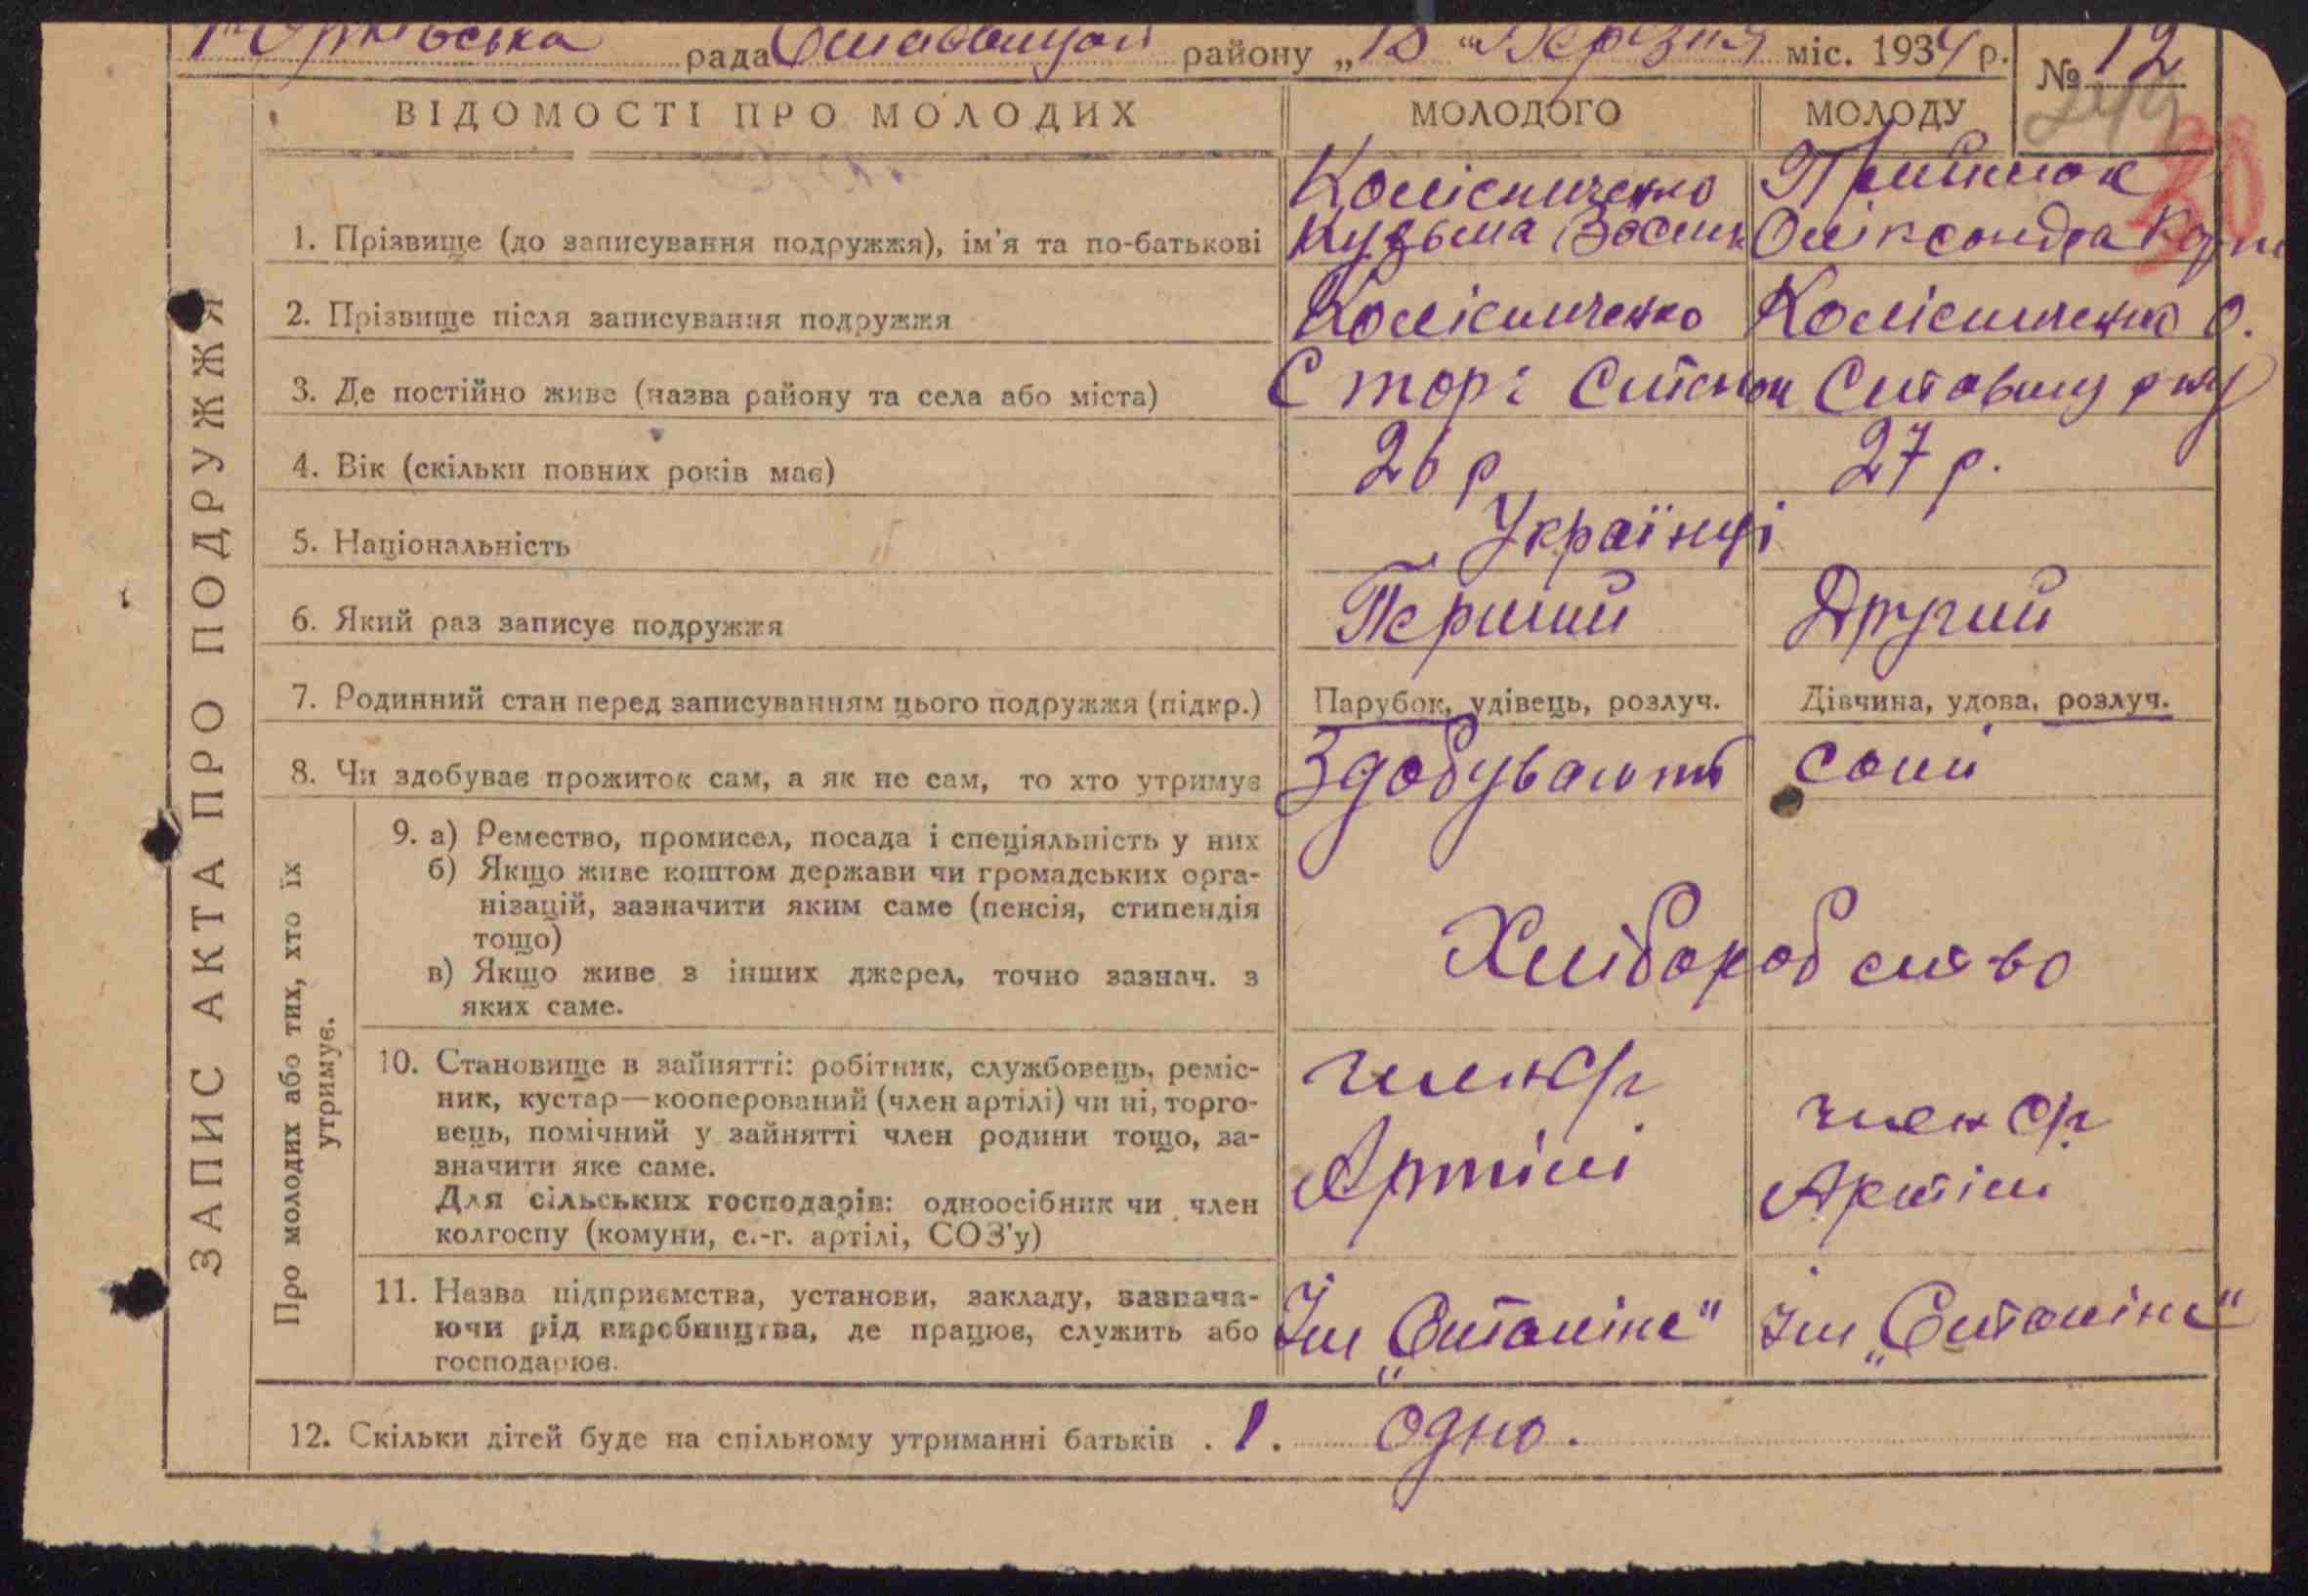 рада району „18“ Березня міс. 1934 р. № 12
ВІДОМОСТІ ПРО МОЛОДИХ МОЛОДОГО МОЛОДУ
Колісниченко
1. Прізвище (до записування подружжя), ім'я та по-батькові Кузьма Олександра
2. Прізвище після записування подружжя Колісниченко Колісниченко О.
3. Де постійно живе (назва району та села або міста) С
4. Вік (скільки повних років має) 26 р 27 р.
5. Національність Українці
6. Який раз записує подружжя Перший Другий
7. Родинний стан перед записуванням цього подружжя (підкр.) Парубок, удівець, розлуч. Дівчина, удова, розлуч.
8. Чи здобуває прожиток сам, а як не сам, то хто утримує Здобувають самі
ЗАПИС АКТА ПРО ПОДРУЖЖЯ
Про молодих або тих, хто їх
утримує.
9. а) Ремество, промисел, посада і спеціяльність у них
б) Якщо живе коштом держави чи громадських орга-
нізацій, зазначити яким саме (пенсія, стипендія
тощо)
в) Якщо живе з інших джерел, точно зазнач. з
яких саме.
Хліборобство
10. Становище в зайнятті: робітник, службовець, реміс-
ник, кустар—кооперований (член артілі) чи ні, торго-
вець, помічний у зайнятті член родини тощо, за-
значити яке саме.
Для сільських господарів: одноосібник чи член
колгоспу (комуни, с.-г. артілі, СОЗ'у)
член с/г член с/г
Артілі Артілі
11. Назва підприємства, установи, закладу, зазнача-
ючи рід виробництва, де працює, служить або
господарює.
Ім „Сталіна" Ім „Сталіна"
12. Скільки дітей буде на спільному утриманні батьків . 1. одно.